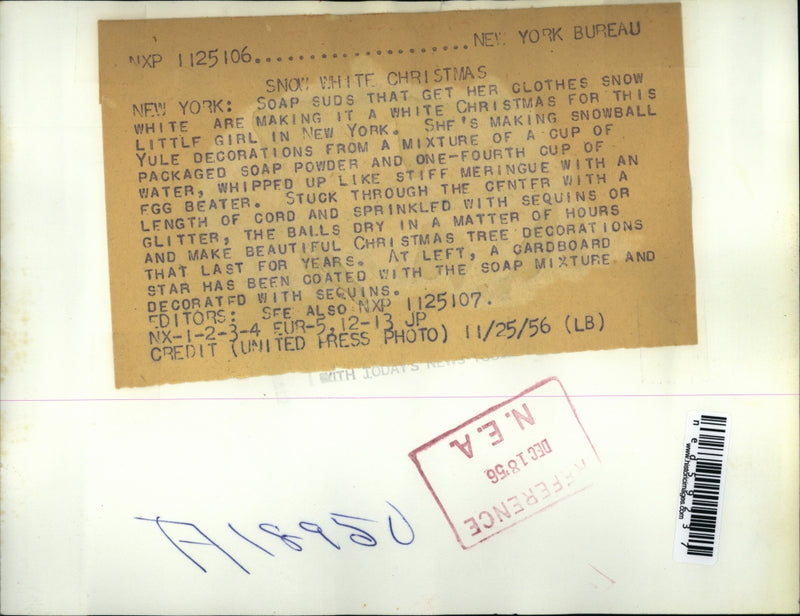 NXP 1125106......................NEW YORK BUREAU
SNOW WHITE CHRISTMAS
NEW YORK: SOAP SUDS THAT GET HER CLOTHES SNOW
WHITE ARE MAKING IT A WHITE CHRISTMAS FOR THIS
LITTLE GIRL IN NEW YORK. SHE'S MAKING SNOWBALL
YULE DECORATIONS FROM A MIXTURE OF A CUP OF
PACKAGED SOAP POWDER AND ONE-FOURTH CUP OF
WATER, WHIPPED UP LIKE STIFF MERINGUE WITH AN
EGG BEATER. STUCK THROUGH THE CENTER WITH A
LENGTH OF CORD AND SPRINKLED WITH SEQUINS OR
GLITTER, THE BALLS DRY IN A MATTER OF HOURS
AND MAKE BEAUTIFUL CHRISTMAS TREE DECORATIONS
THAT LAST FOR YEARS. AT LEFT, A CARDBOARD
STAR HAS BEEN COATED WITH THE SOAP MIXTURE AND
DECORATED WITH SEQUINS.
EDITORS: SEE ALSO NXP 1125107.
NX-1-2-3-4 EUR-5, 12-13 JP
CREDIT (UNITED PRESS PHOTO) 11/25/56 (LB)
WITH TODAY'S NEWS
N.E.A.
DEC 18 '56
REFERENCE
ned59237
www.historicimages.com